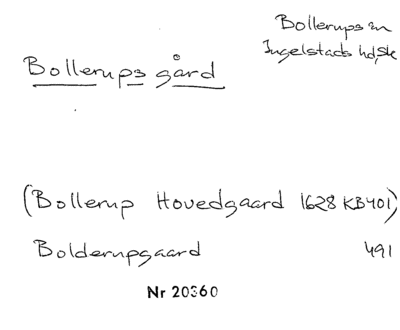 Bollerups sn
Ingelstads hd, Sk
Bollerups gård
(Bollerup Hovedgaard 1628 KB401)
Bolderupgaard 491
Nr 20360